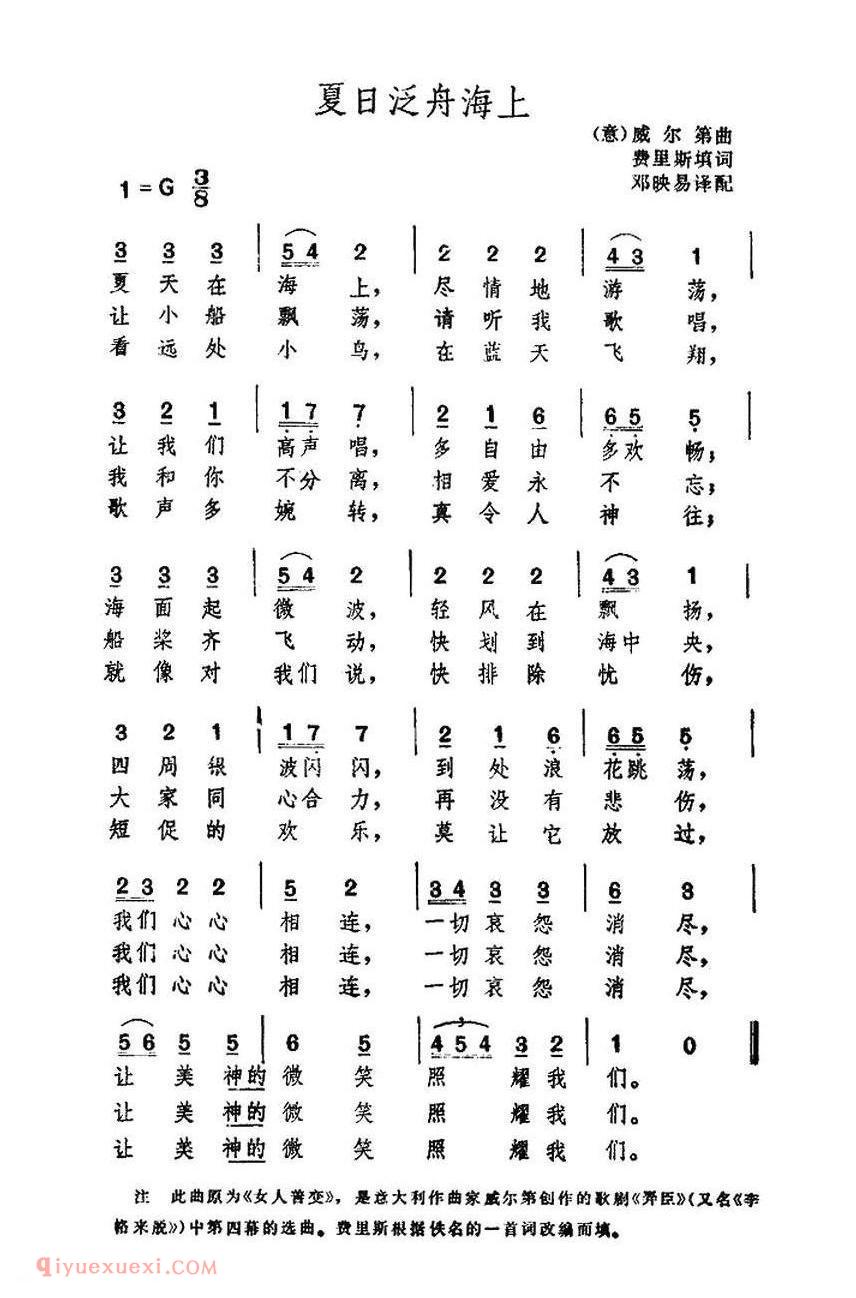 夏日泛舟海上
(意)威尔第曲
费里斯填词
邓映易译配
1=G 3/8
3 3 3 | 5 4 2 | 2 2 2 | 4 3 1 |
夏天在 海上， 尽情地 游荡，
让小船 飘荡， 请听我 歌唱，
看远处 小鸟， 在蓝天 飞翔，
3 2 1 | 1 7 7 | 2 1 6 | 6 5 5 |
让我们 高声唱， 多自由 多欢畅；
我和你 不分离， 相爱永 不忘；
歌声多 婉转， 真令人 神往；
3 3 3 | 5 4 2 | 2 2 2 | 4 3 1 |
海面起 微波， 轻风在 飘扬，
船桨齐 飞动， 快划到 海中央，
就像对 我们说， 快排除 忧伤，
3 2 1 | 1 7 7 | 2 1 6 | 6 5 5 |
四周银 波闪闪， 到处浪 花跳荡，
大家同 心合力， 再没有 悲伤，
短促的 欢乐， 莫让它 放过，
2 3 2 2 | 5 2 | 3 4 3 3 | 6 3 |
我们心心 相连， 一切哀怨 消尽，
我们心心 相连， 一切哀怨 消尽，
我们心心 相连， 一切哀怨 消尽，
5 6 5 5 | 6 5 | 4 5 4 3 2 | 1 0 ‖
3
让美神的 微笑 照耀我 们。
让美神的 微笑 照耀我 们。
让美神的 微笑 照耀我 们。
注 此曲原为《女人善变》，是意大利作曲家威尔第创作的歌剧《弄臣》(又名《李
格来脱》)中第四幕的选曲。费里斯根据佚名的一首词改编而填。
qiyuexuexi.com